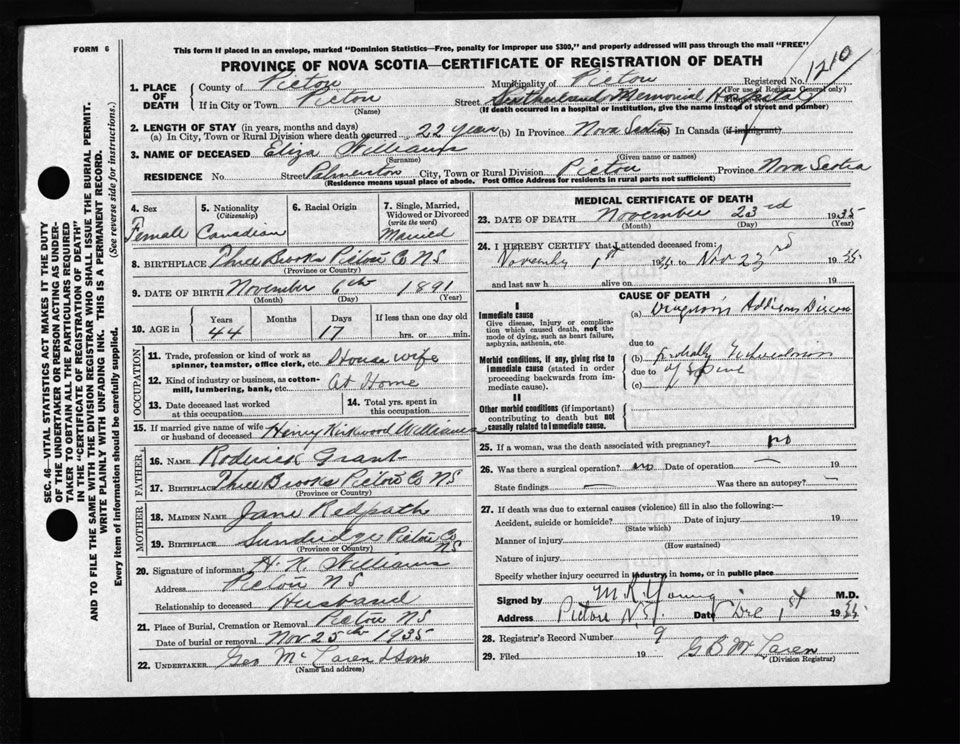 FORM 6
This form if placed in an envelope, marked "Dominion Statistics—Free, penalty for improper use $300," and properly addressed will pass through the mail "FREE"
PROVINCE OF NOVA SCOTIA—CERTIFICATE OF REGISTRATION OF DEATH
Registered No. 1210
(For use of Registrar General only)
1. PLACE OF DEATH
County of Pictou Municipality of Pictou
If in City or Town Pictou Street Sutherland Memorial Hospital
(Name) (If death occurred in a hospital or institution, give the name instead of street and number)
2. LENGTH OF STAY (in years, months and days)
(a) In City, Town or Rural Division where death occurred 22 years (b) In Province Nova Scotia In Canada (if immigrant)
3. NAME OF DECEASED Eliza Williams
(Surname) (Given name or names)
RESIDENCE No. Street Palmerston City, Town or Rural Division Pictou Province Nova Scotia
(Residence means usual place of abode. Post Office Address for residents in rural parts not sufficient)
SEC. 46—VITAL STATISTICS ACT MAKES IT THE DUTY
OF THE UNDERTAKER OR PERSON ACTING AS UNDER-
TAKER TO OBTAIN ALL THE PARTICULARS REQUIRED
IN THE "CERTIFICATE OF REGISTRATION OF DEATH"
AND TO FILE THE SAME WITH THE DIVISION REGISTRAR WHO SHALL ISSUE THE BURIAL PERMIT.
WRITE PLAINLY WITH UNFADING INK. THIS IS A PERMANENT RECORD.
Every item of information should be carefully supplied. (See reverse side for instructions.)
4. Sex
Female
5. Nationality
(Citizenship)
Canadian
6. Racial Origin
7. Single, Married,
Widowed or Divorced
(write the word)
Married
8. BIRTHPLACE Three Brooks Pictou Co NS
(Province or Country)
9. DATE OF BIRTH November 6th 1891
(Month) (Day) (Year)
10. AGE in
Years Months Days If less than one day
44 17 hrs. or min.
OCCUPATION
11. Trade, profession or kind of work as
spinner, teamster, office clerk, etc. House wife
12. Kind of industry or business, as cotton-
mill, lumbering, bank, etc. At Home
13. Date deceased last worked
at this occupation
14. Total yrs. spent in
this occupation
15. If married give name of wife
or husband of deceased Henry Kirkwood Williams
FATHER
16. NAME Roderick Grant
17. BIRTHPLACE Three Brooks Pictou Co NS
(Province or Country)
MOTHER
18. MAIDEN NAME Jane Redpath
19. BIRTHPLACE Sundridge Pictou Co NS
(Province or Country)
20. Signature of informant H. K. Williams
Address Pictou NS
Relationship to deceased Husband
21. Place of Burial, Cremation or Removal Pictou NS
Date of burial or removal Nov 25th 1935
22. UNDERTAKER Geo McLaren & Sons
(Name and address)
MEDICAL CERTIFICATE OF DEATH
23. DATE OF DEATH November 23rd 1935
(Month) (Day) (Year)
24. I HEREBY CERTIFY that I attended deceased from:
November 1st 1935 to Nov 23rd 1935
and last saw h alive on 19
CAUSE OF DEATH
I
Immediate cause
Give disease, injury or complica-
tion which caused death, not the
mode of dying, such as heart failure,
asphyxia, asthenia, etc.
(a) Addisons Disease
due to
Morbid conditions, if any, giving rise to
immediate cause (stated in order
proceeding backwards from im-
mediate cause).
(b) probably
due to of spine
(c)
II
Other morbid conditions (if important)
contributing to death but not
causally related to immediate cause.
25. If a woman, was the death associated with pregnancy? no
26. Was there a surgical operation? no Date of operation — 19
State findings — Was there an autopsy? —
27. If death was due to external causes (violence) fill in also the following:—
Accident, suicide or homicide? Date of injury 19
(State which)
Manner of injury
(How sustained)
Nature of injury
Specify whether injury occurred in industry, in home, or in public place
Signed by M R Young M.D.
Address Pictou N.S. Date Dec 1st 1935
28. Registrar's Record Number 9
29. Filed 19 G B McLaren
(Division Registrar)